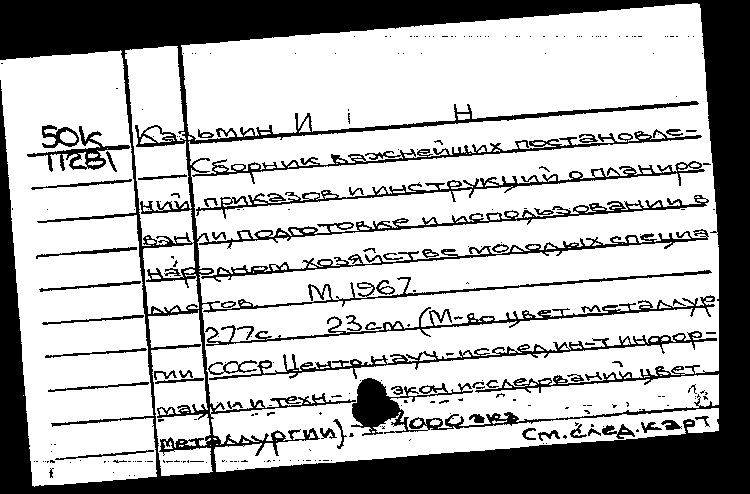 50К Казьмин, И Н
112В\ Сборник важнейших постановле-
ний, приказов и инструкций о планиро-
вании, подготовке и использовании в
народном хозяйстве молодых специа-
листов. М., 1967.
277с. 23см. (М-во цвет. металлур-
гии СССР Центр. науч.-исслед. ин-т инфор-
мации и техн.- экон. исследований цвет.
металлургии). 4000 экз.
См. след. карт